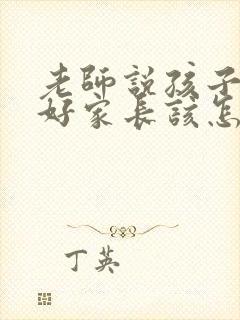 老師説孩子
好家長該怎
丁英